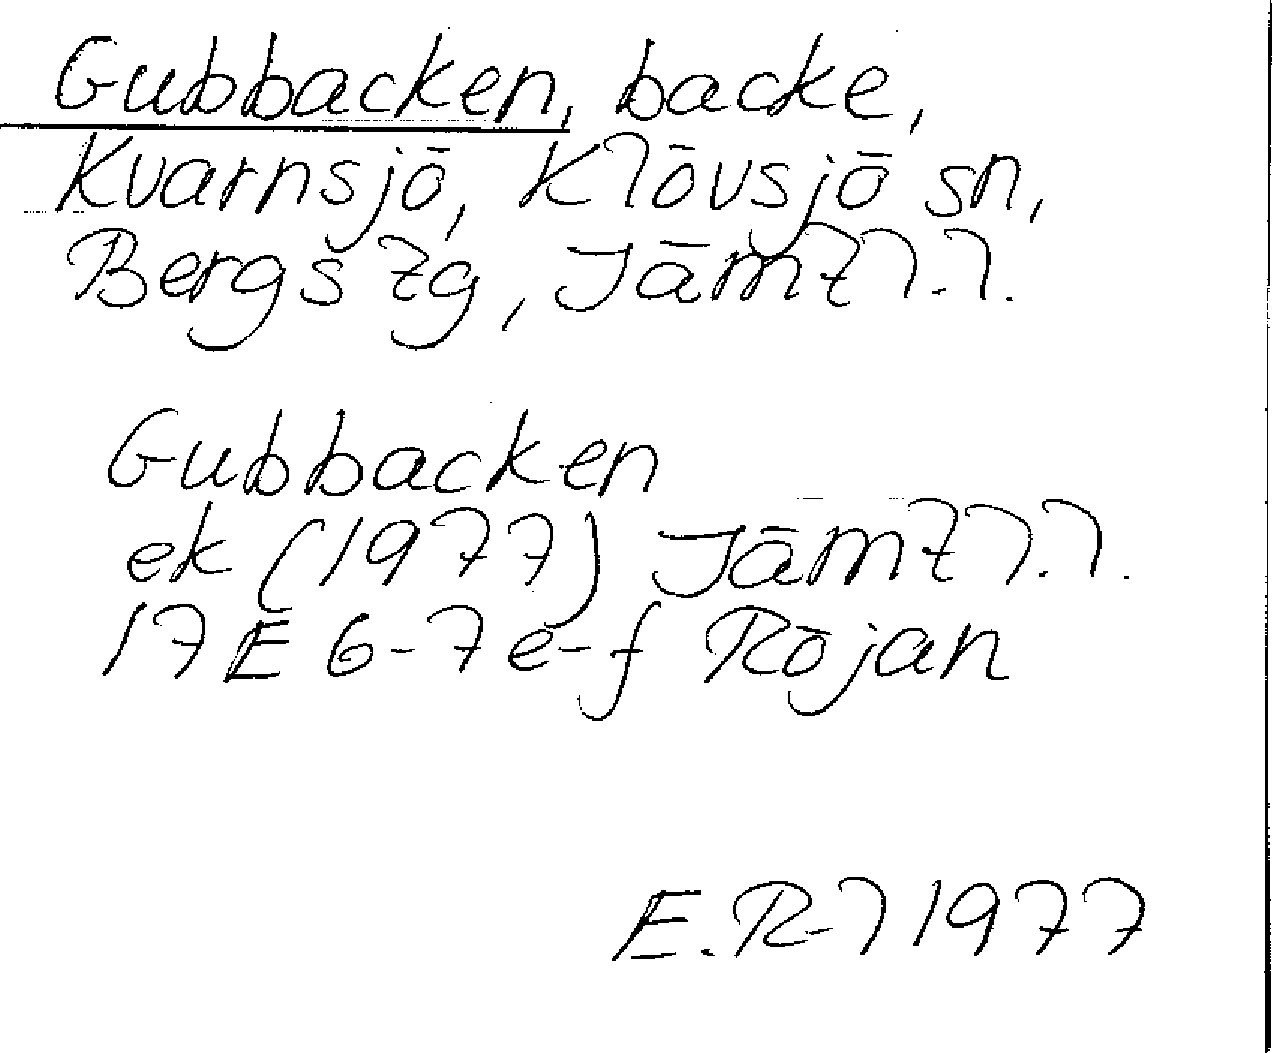 Gubbacken, backe,
Kvarnsjö, Klövsjö sn,
Bergs tg, Jämtl.l.
Gubbacken
ek (1977) Jämtl.l.
17E 6-7e-f Röjan
E.R-l 1977